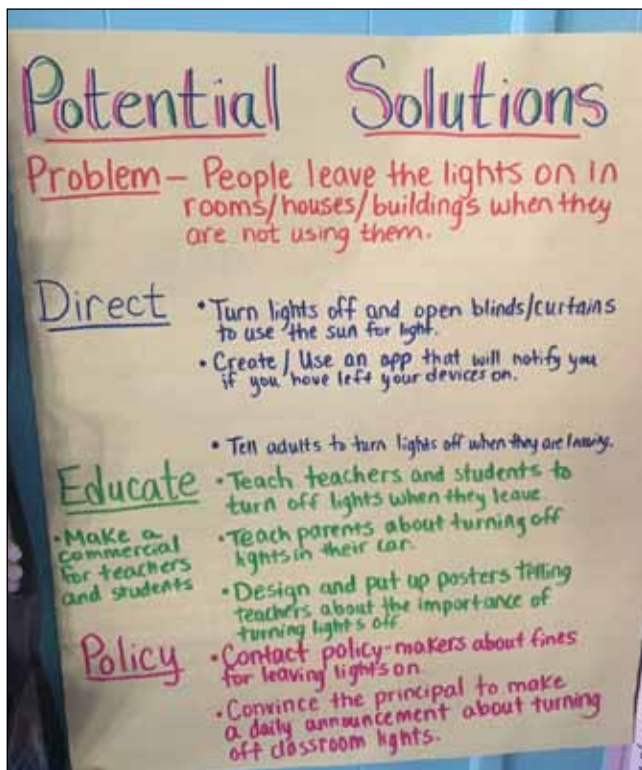 Potential Solutions
Problem – People leave the lights on in
rooms/houses/buildings when they
are not using them.
Direct
• Turn lights off and open blinds/curtains
to use the sun for light.
• Create / Use an app that will notify you
if you have left your devices on.
• Tell adults to turn lights off when they are leaving.
Educate
• Make a
commercial
for teachers
and students
• Teach teachers and students to
turn off lights when they leave
• Teach parents about turning off
lights in their car.
• Design and put up posters telling
teachers about the importance of
turning lights off
Policy
• Contact policy-makers about fines
for leaving lights on
• Convince the principal to make
a daily announcement about turning
off classroom lights.